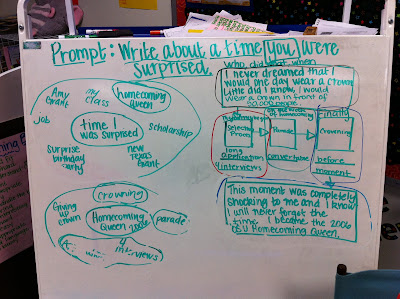 Prompt: Write about a time you were
surprised.
Amy
Grant
my
class
homecoming
queen
job
time I
was surprised
scholarship
surprise
birthday
party
new
Texas
Grant
crowning
Giving
up
crown
Homecoming
Queen 2006
parade
4
interviews
who, did what, when
I never dreamed that I
would one day wear a crown.
Little did I know, I would
wear a crown in front of
people.
Selection
Process
long
application
interviews
Parade
convertible
Finally
Crowning
before
moment
This moment was completely
shocking to me and I know
I will never forget the
time I became the 2006
OSU Homecoming Queen.